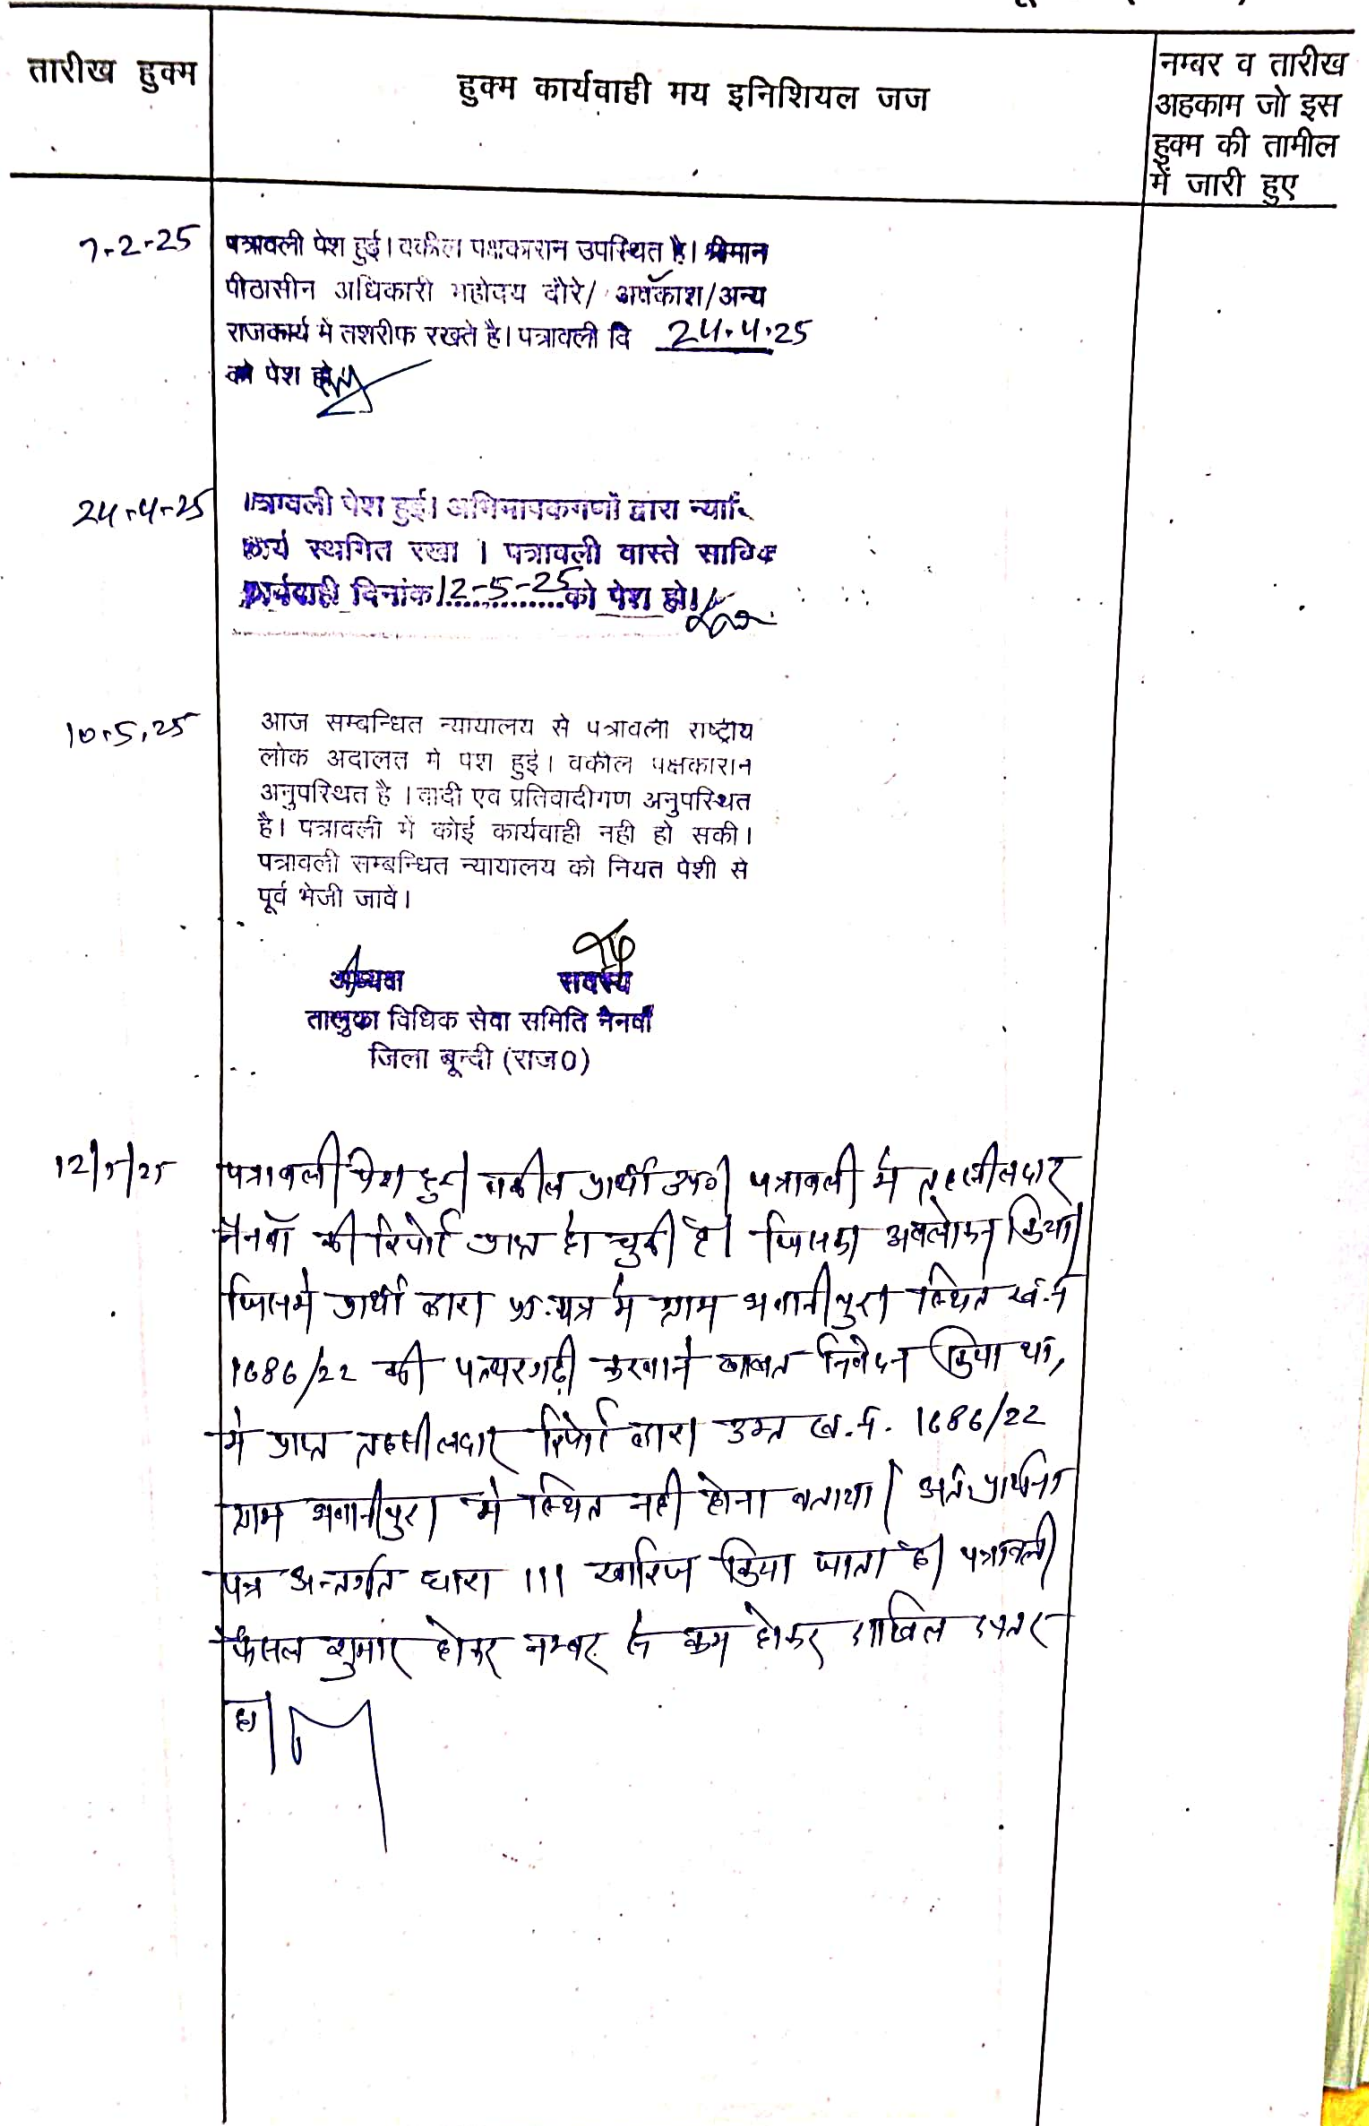 तारीख हुक्म
हुक्म कार्यवाही मय इनिशियल जज
नम्बर व तारीख
अहकाम जो इस
हुक्म की तामील
में जारी हुए
7-2-25
पत्रावली पेश हुई। वकील पक्षकारान उपस्थित है। श्रीमान
पीठासीन अधिकारी महोदय दौरे/ अवकाश/अन्य
राजकार्य में तशरीफ रखते है। पत्रावली दि 24.4.25
को पेश हो
24-4-25
पत्रावली पेश हुई। अभिभाषकगणों द्वारा न्यायि
कार्य स्थगित रखा । पत्रावली वास्ते साबिक
कार्यवाही दिनांक 12-5-25 को पेश हो।
10.5.25
आज सम्बन्धित न्यायालय से पत्रावली राष्ट्रीय
लोक अदालत मे पेश हुई। वकील पक्षकारान
अनुपस्थित है । वादी एव प्रतिवादीगण अनुपस्थित
है। पत्रावली में कोई कार्यवाही नही हो सकी।
पत्रावली सम्बन्धित न्यायालय को नियत पेशी से
पूर्व भेजी जावे।
अध्यक्ष सदस्य
तालुका विधिक सेवा समिति नैनवाँ
जिला बून्दी (राज0)
12/5/25
पत्रावली पेश हुई वकील प्रार्थी उप0। पत्रावली में तहसीलदार
नैनवाँ की रिपोर्ट प्राप्त हो चुकी है। जिसका अवलोकन किया।
जिसमे प्रार्थी द्वारा प्रा.पत्र मे ग्राम भवानीपुरा स्थित ख.न.
1686/22 की पत्थरगढ़ी करवाने बाबत निवेदन किया था,
मे प्राप्त तहसीलदार रिपोर्ट द्वारा उक्त ख.न. 1686/22
ग्राम भवानीपुरा मे स्थित नही होना बताया। अतः प्रार्थना
पत्र अन्तर्गत धारा 111 खारिज किया जाता है। पत्रावली
फैसल शुमार होकर नम्बर से कम होकर दाखिल दफ्तर
हो।